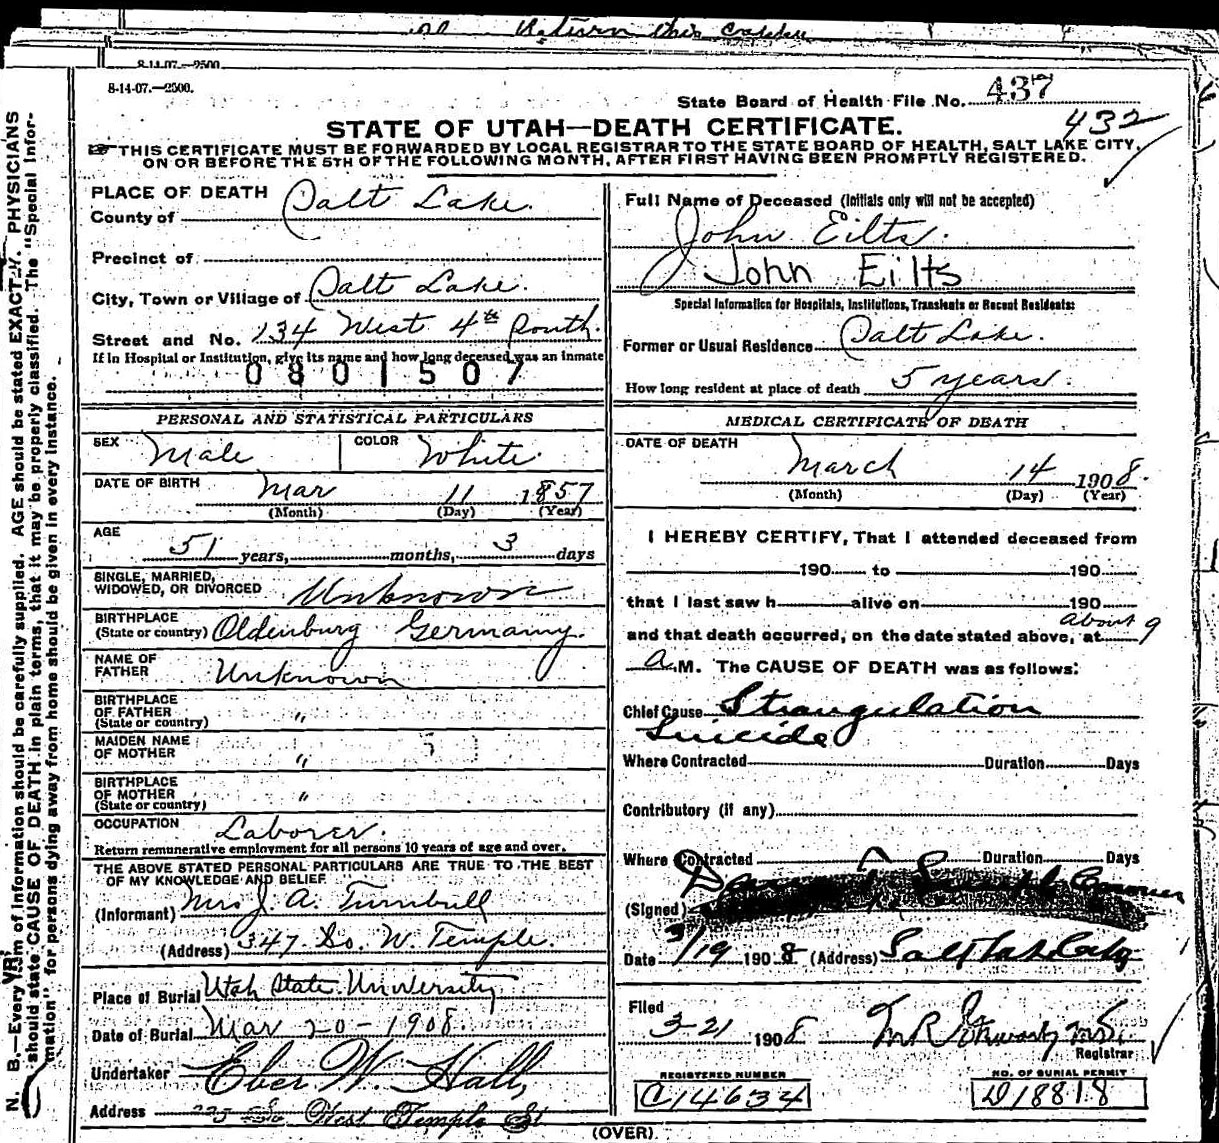 Return this
8-14-07.—2500.
8-14-07.—2500.
State Board of Health File No. 437
432
STATE OF UTAH—DEATH CERTIFICATE.
THIS CERTIFICATE MUST BE FORWARDED BY LOCAL REGISTRAR TO THE STATE BOARD OF HEALTH, SALT LAKE CITY,
ON OR BEFORE THE 5TH OF THE FOLLOWING MONTH, AFTER FIRST HAVING BEEN PROMPTLY REGISTERED.
N. B.—Every item of information should be carefully supplied. AGE should be stated EXACTLY. PHYSICIANS
should state CAUSE OF DEATH in plain terms, that it may be properly classified. The "Special Infor-
mation" for persons dying away from home should be given in every instance.
PLACE OF DEATH
County of Salt Lake.
Precinct of
City, Town or Village of Salt Lake.
Street and No. 134 West 4th South.
If in Hospital or Institution, give its name and how long deceased was an inmate
0801507
PERSONAL AND STATISTICAL PARTICULARS
SEX Male COLOR White.
DATE OF BIRTH Mar 11 1857
(Month) (Day) (Year)
AGE
51 years, months, 3 days
SINGLE, MARRIED,
WIDOWED, OR DIVORCED Unknown
BIRTHPLACE
(State or country) Oldenburg Germany.
NAME OF
FATHER Unknown
BIRTHPLACE
OF FATHER
(State or country) "
MAIDEN NAME
OF MOTHER "
BIRTHPLACE
OF MOTHER
(State or country) "
OCCUPATION Laborer.
Return remunerative employment for all persons 10 years of age and over.
THE ABOVE STATED PERSONAL PARTICULARS ARE TRUE TO THE BEST
OF MY KNOWLEDGE AND BELIEF
(Informant) Mrs J. A. Turnbull
(Address) 347 So. W. Temple.
Place of Burial Utah State University
Date of Burial Mar 20-1908.
Undertaker Eber W. Hall,
Address 225 So West Temple St
Full Name of Deceased (Initials only will not be accepted)
John Eilts.
John Eilts
Special Information for Hospitals, Institutions, Transients or Recent Residents:
Former or Usual Residence Salt Lake.
How long resident at place of death 5 years.
MEDICAL CERTIFICATE OF DEATH
DATE OF DEATH
March 14 1908.
(Month) (Day) (Year)
I HEREBY CERTIFY, That I attended deceased from
190 to 190
that I last saw h alive on 190
and that death occurred, on the date stated above, at about 9
A.M. The CAUSE OF DEATH was as follows:
Chief Cause Strangulation
Suicide
Where Contracted Duration Days
Contributory (if any)
Where Contracted Duration Days
(Signed) Coroner
Date 3/19 1908 (Address) Salt Lake City
Filed
3-21 1908
Registrar
REGISTERED NUMBER
C14634
NO. OF BURIAL PERMIT
D18818
(OVER)